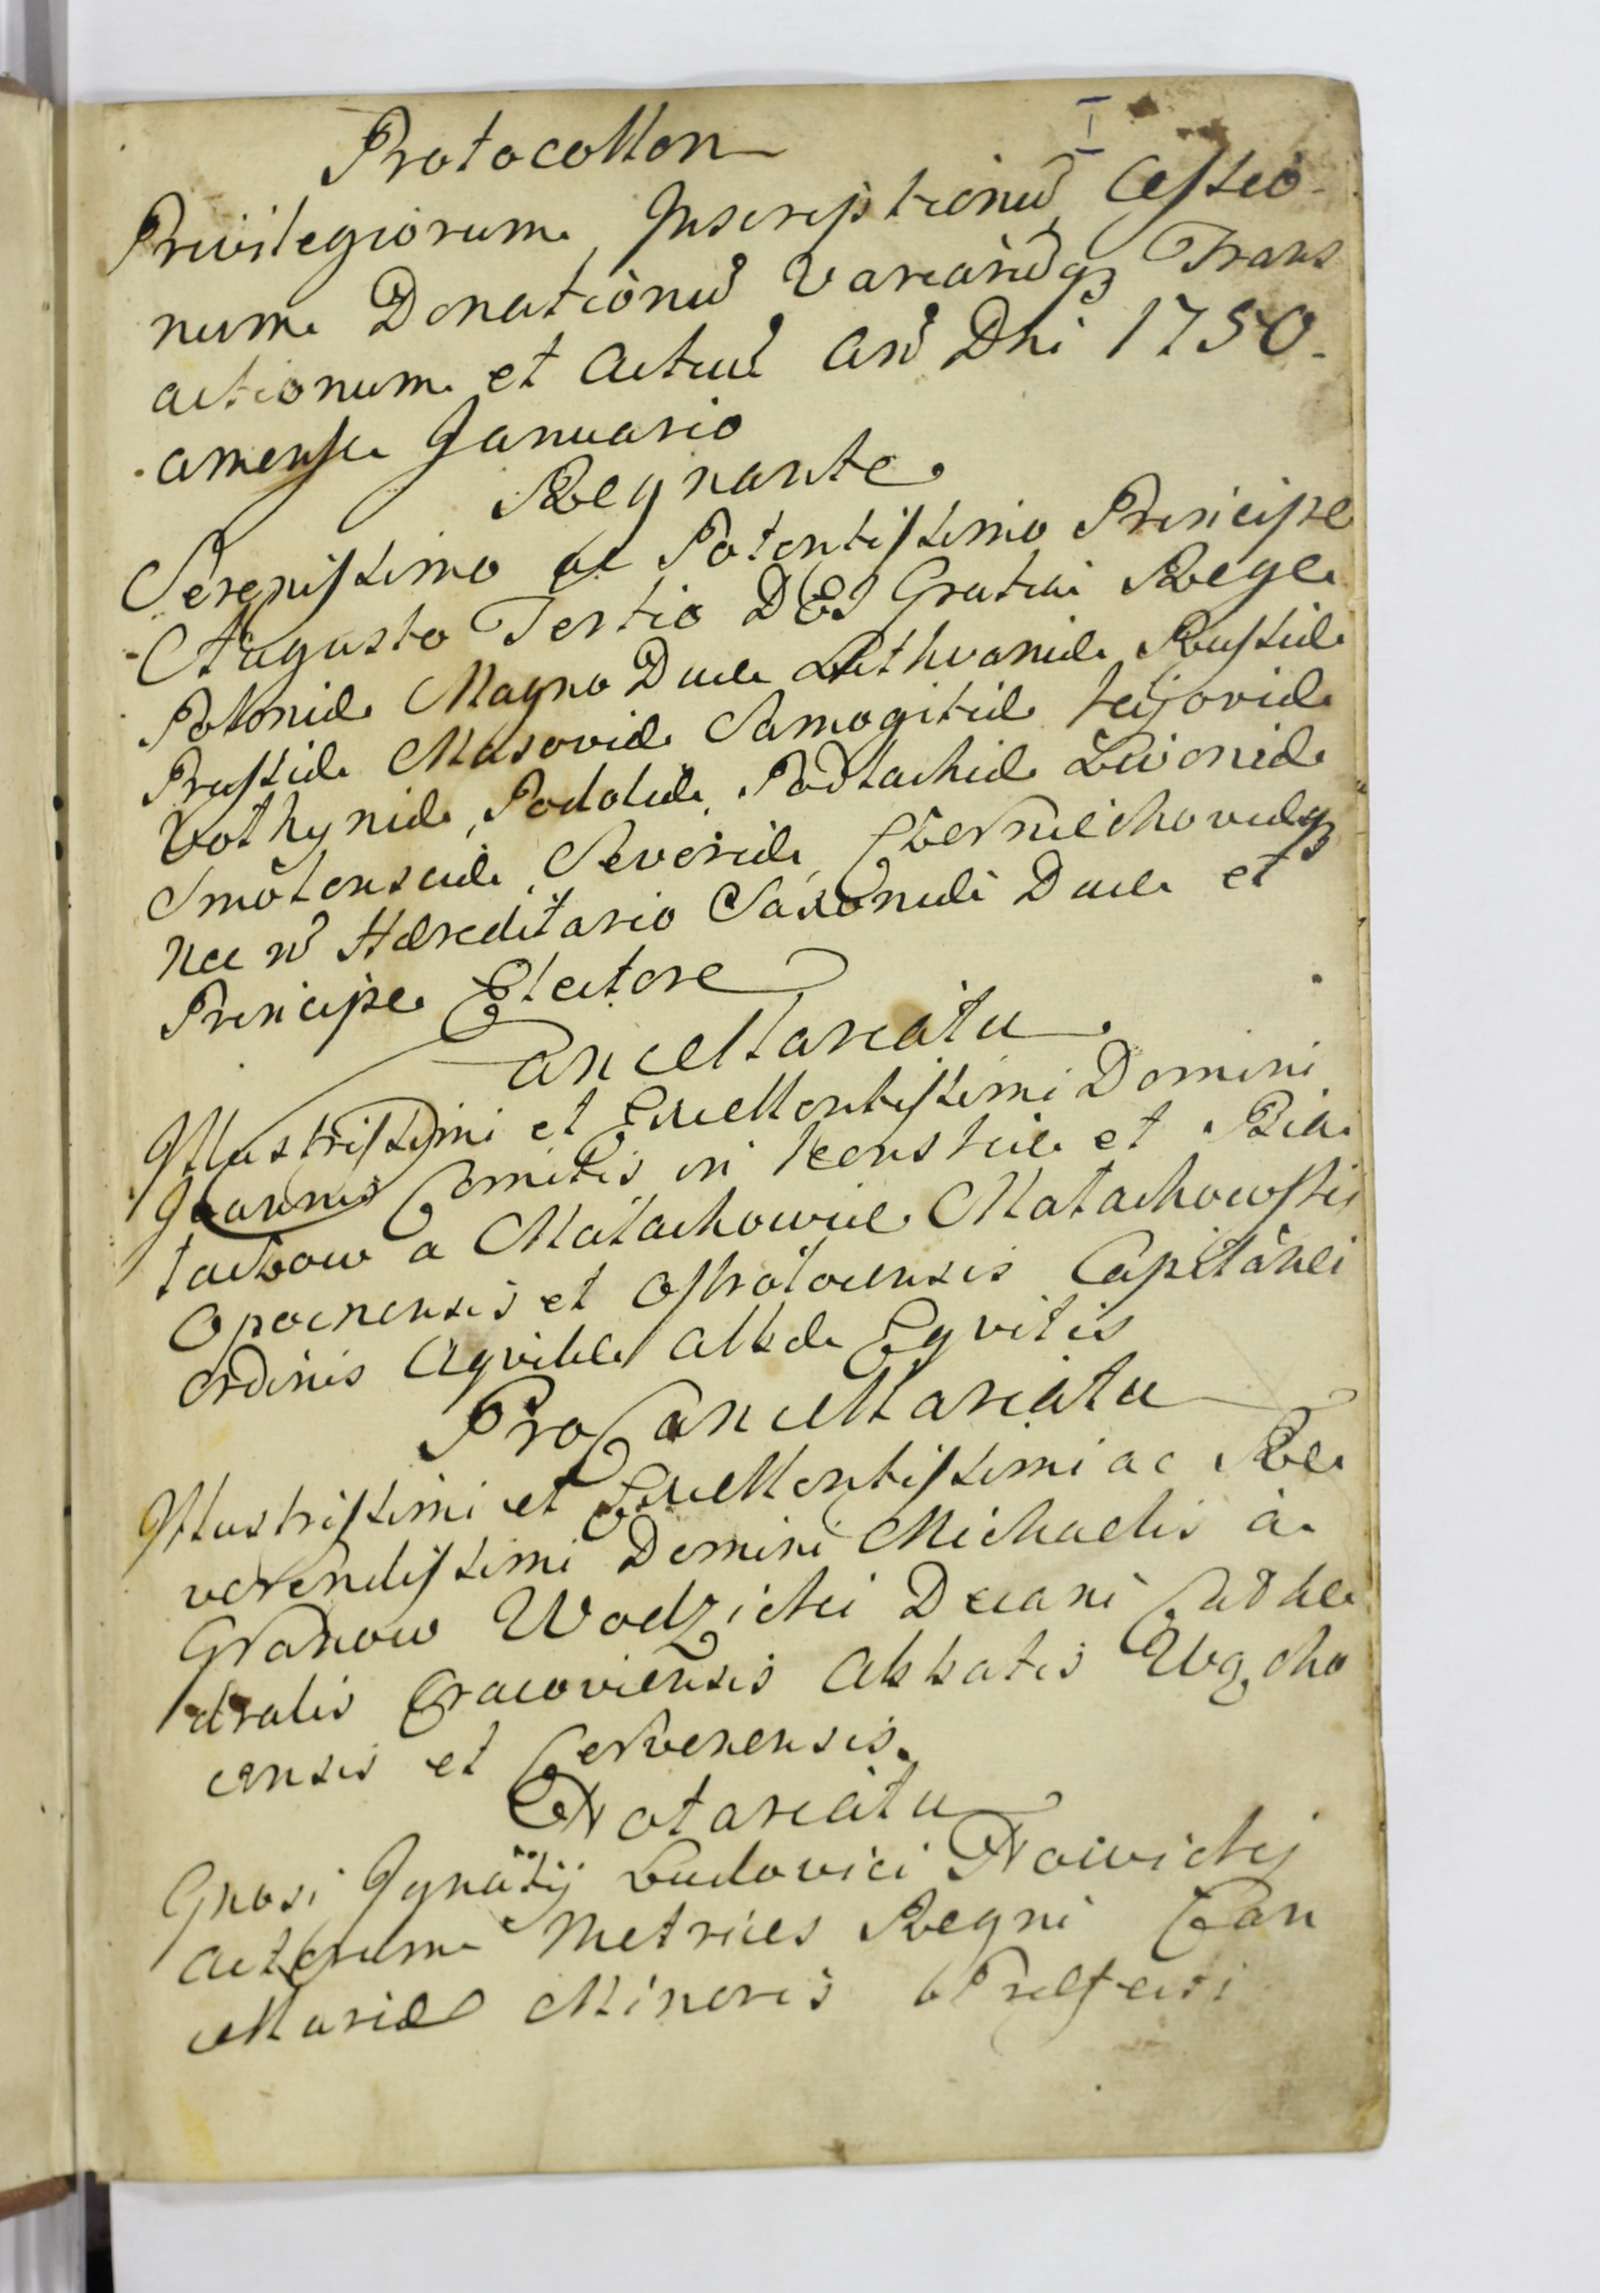 I
Protocollon
Privilegiorum, Inscriptionũ, Cessio-
num Donationũ Variarũqȝ Trans
actionum et Actuũ Anũ Dni 1750.
a mense Januario
Regnante
Serenissimo ac Potentissimo Principe
Augusto Tertio DEI Gratia Rege
Poloniæ Magno Duce Lithvaniæ Russiæ
Prussiæ Masoviæ Samogitiæ Kijoviæ
Volhyniæ, Podoliæ, Podlachiæ Livoniæ
Smolensciæ, Severiæ, Czerniechoviæqȝ
Nec nõ Hæreditario Saxoniæ Duce et
Principe Electore
Cancellariatu
Illustrissimi et Excellentissimi Domini
Joannis Comitis in Konskie et Bia
laczow a Małachowice Małachowski
Opocnensis et Ostrołocensis Capitanei
Ordinis Aqvilæ Albæ Eqvitis
ProCancellariatu
Illustrissimi et Excellentissimi ac Re
verendissimi Domini Michaelis à
Granow Wodzicki Decani Cathe
dralis Cracoviensis Abbatis Wącho
censis et Czervenensis.
Notariatu
Gnosi Ignatij Ludovici Nowickij
Actorum Metrices Regni Can
cellariæ Minoris Præfecti